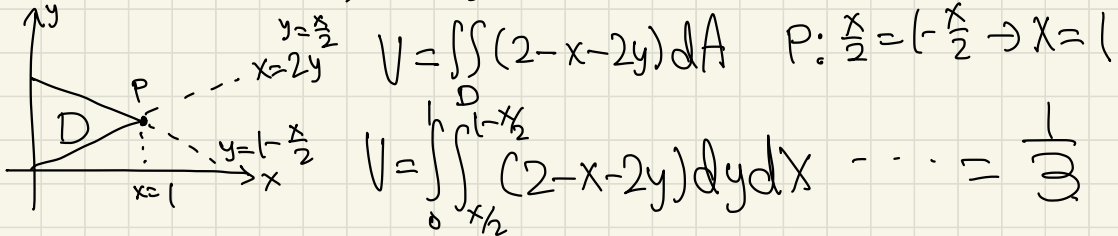 y
y=x/2
x=2y
P
D
y=1-x/2
x=1
x
V=∬_D (2-x-2y)dA
P: x/2=1-x/2 → x=1
V=∫_0^1 ∫_{x/2}^{1-x/2} (2-x-2y)dydx ... = 1/3